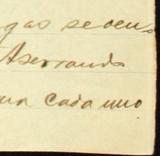 gas se ven
Aserrando
una cada uno